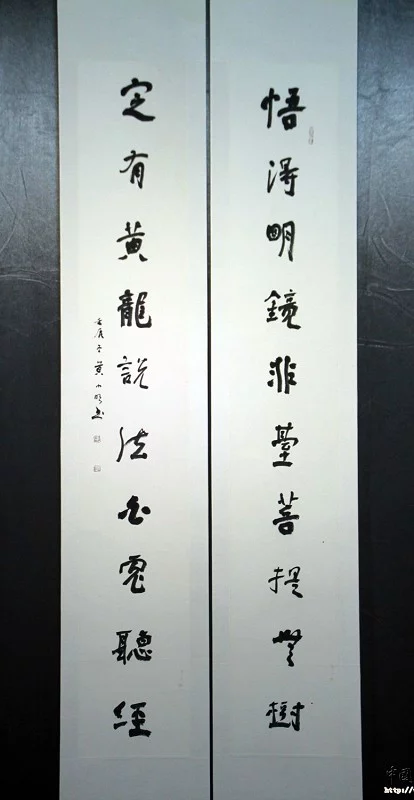 悟得明鏡非臺菩提無樹
定有黃龍說法白聽經
壬辰冬黃小
中國
http://